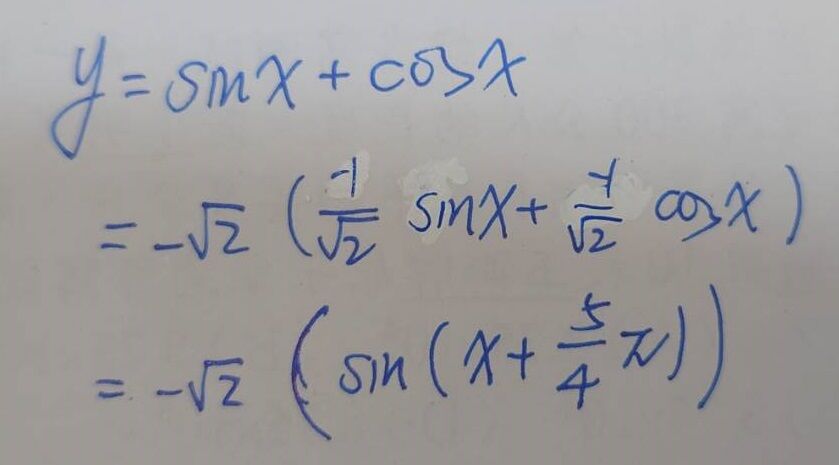 y = sinx + cosx
= -√2 ( -1/√2 sinx + -1/√2 cosx )
= -√2 ( sin ( x + 5/4 π ) )